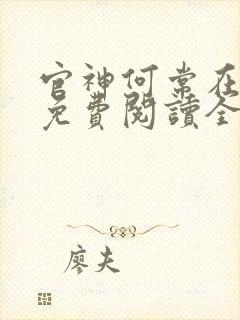 官神何常在
免費閱讀全
廖夫